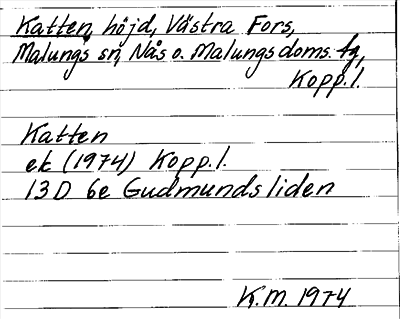 Katten, höjd, Västra Fors,
Malungs sn, Nås o. Malungs doms. fg,
Kopp.l.
Katten
ek (1974) Kopp.l.
13D 6e Gudmundsliden
K.M. 1974